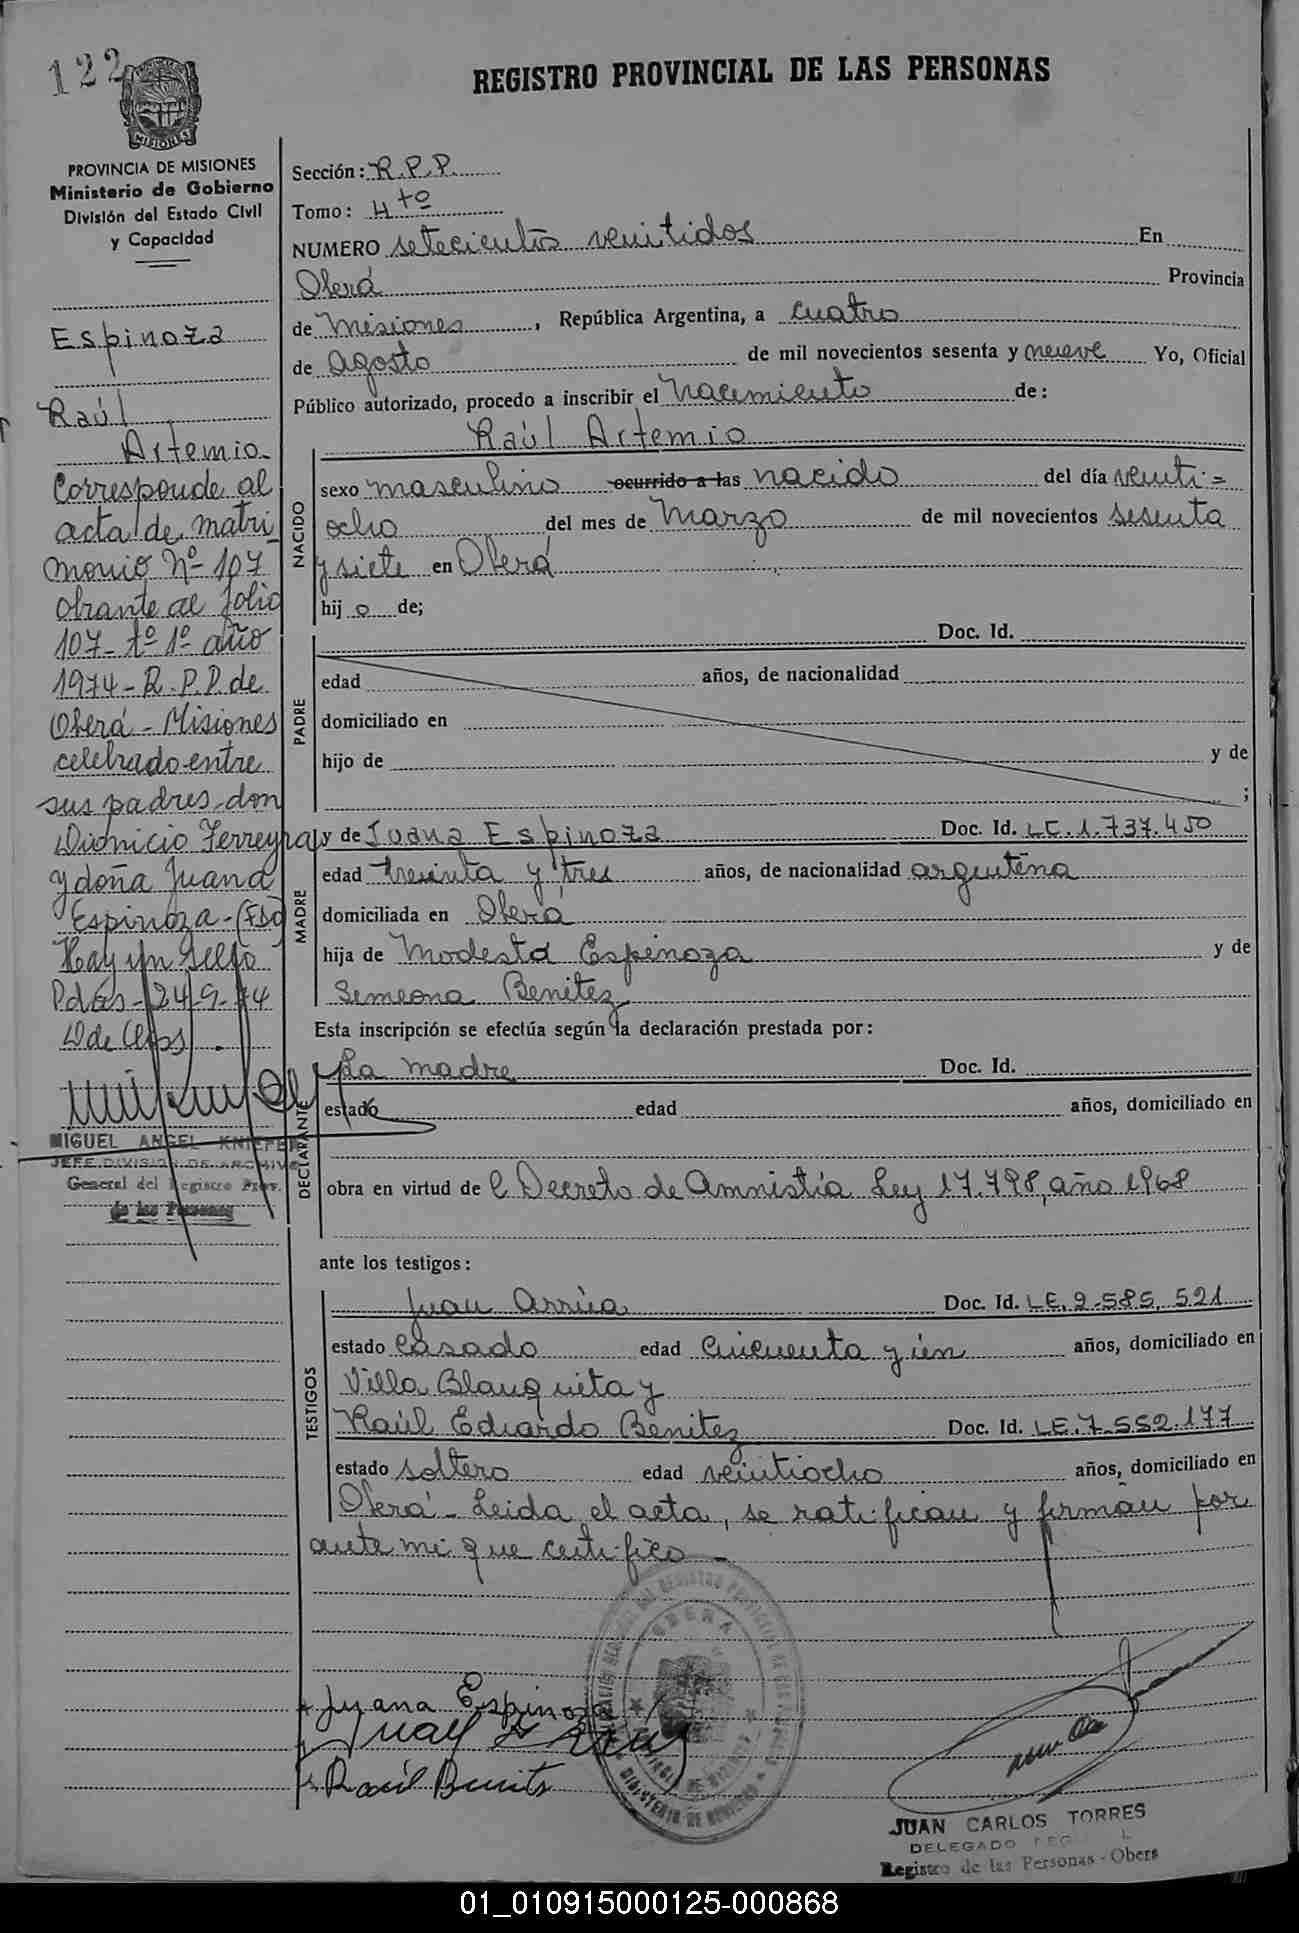 122
REGISTRO PROVINCIAL DE LAS PERSONAS
MISIONES
PROVINCIA DE MISIONES
Ministerio de Gobierno
División del Estado Civil
y Capacidad
Espinoza
Raúl
Artemio
Corresponde al
acta de matri-
monio Nº 107
obrante al folio
107 - tº 1º año
1974 - R.P.P. de
Oberá - Misiones
celebrado entre
sus padres don
Dionicio Ferreyra
y doña Juana
Espinoza - (Fdo)
Hay un sello
Pdas - 24-9-74
MIGUEL ANGEL KNIEFER
JEFE DIVISION DE ARCHIVO
General del Registro Prov.
de las Personas
Sección: R.P.P.
Tomo: 4to
NUMERO setecientos veintidos En
Oberá Provincia
de Misiones, República Argentina, a cuatro
de agosto de mil novecientos sesenta y nueve Yo, Oficial
Público autorizado, procedo a inscribir el nacimiento de:
Raúl Artemio
NACIDO
sexo masculino ocurrido a las nacido del día veinti=
ocho del mes de Marzo de mil novecientos sesenta
y siete en Oberá
hij o de;
PADRE
Doc. Id.
edad años, de nacionalidad
domiciliado en
hijo de y de
;
MADRE
y de Juana Espinoza Doc. Id. LC.1.737.450
edad treinta y tres años, de nacionalidad argentina
domiciliada en Oberá
hija de Modesta Espinoza y de
Simeona Benitez
Esta inscripción se efectúa según la declaración prestada por:
DECLARANTE
La madre Doc. Id.
estado edad años, domiciliado en
obra en virtud de l Decreto de Amnistía Ley 17.798, año 1968
ante los testigos:
TESTIGOS
Juan Arrúa Doc. Id. LE.2.585.521
estado casado edad cincuenta y un años, domiciliado en
Villa Blanquita y
Raúl Eduardo Benitez Doc. Id. LE.7.552.177
estado soltero edad veintiocho años, domiciliado en
Oberá - Leida el acta, se ratifican y firman por
ante mi que certifico -
Juana Espinoza
Raúl Benitez
OBERA
JUAN CARLOS TORRES
DELEGADO
Registro de las Personas - Obera
01_010915000125-000868